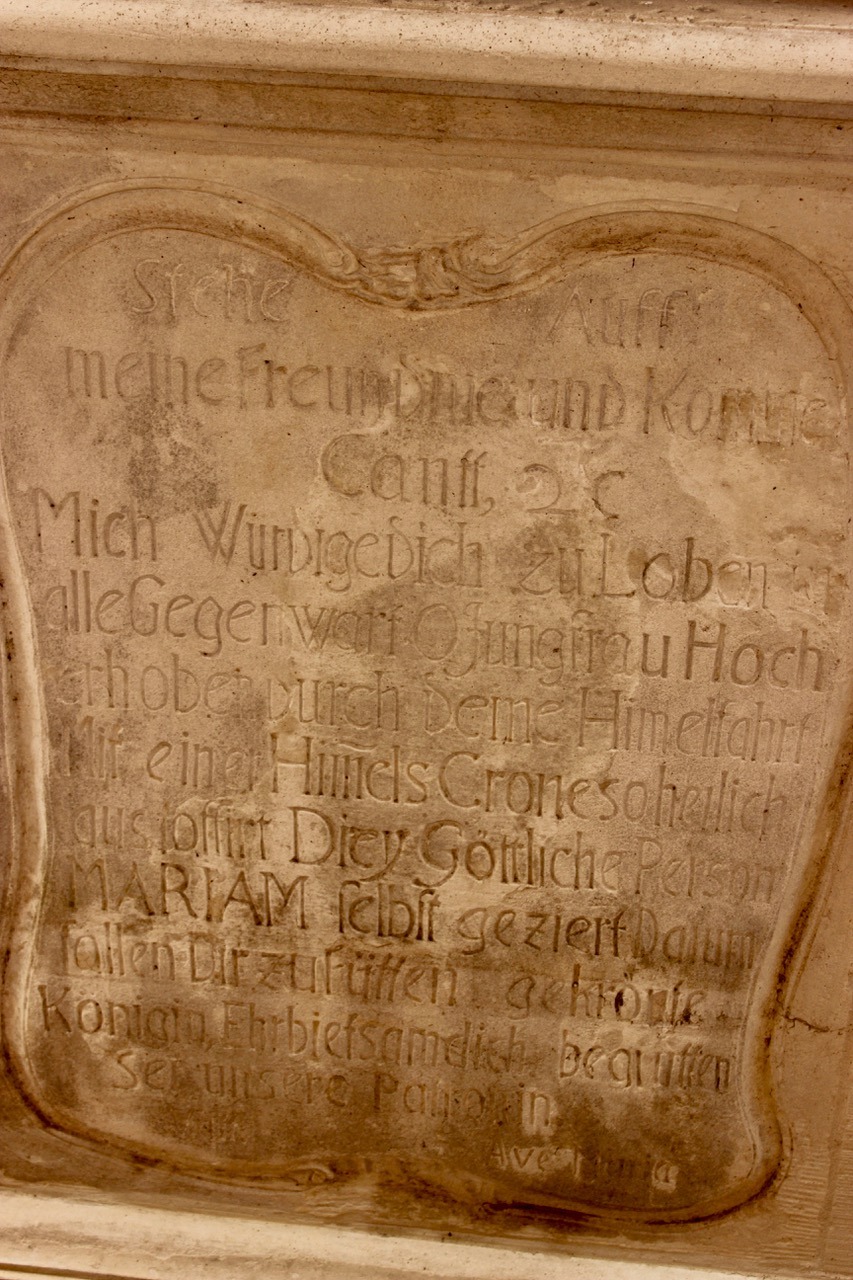 Stehe Auff
meine Freundnie und Komme
Cantt, 2 C
Mich Würdige dich zu Loben in
alle Gegenwart O Jungfrau Hoch
erhoben durch deine Himelfahrt
Mit einer Him̄els Crone so heilich
aus Drey Göttliche Person
MARIAM selbst geziert Darum
fallen Dir zu Fütten gekrönte
Königin, Ehrbietsamdlich begrütten
Sei unsere Patronin
Ave Maria